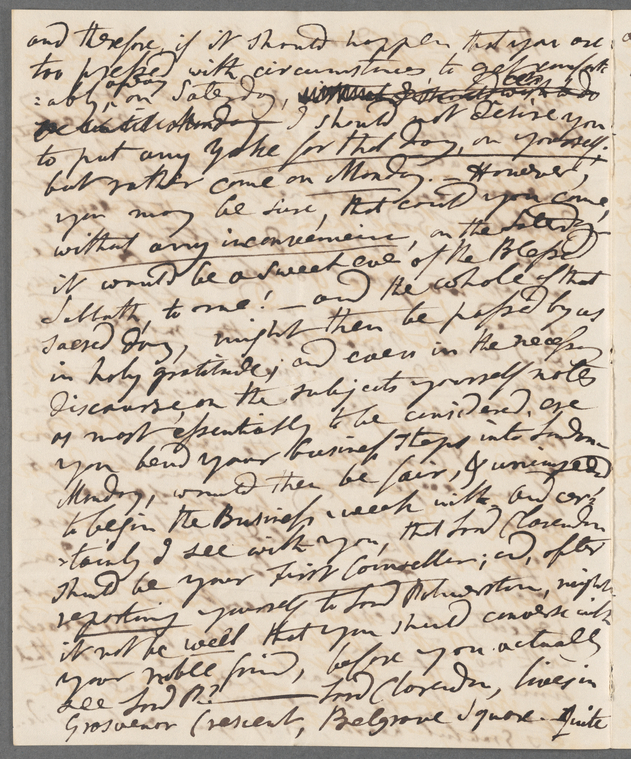 and therefore, if it should happen, that you are
too pressed with circumstances, to get comfort
:ably, away on Saturday,
I should not desire you
to put any Yoke for that day, on yourself,
but rather come on Monday. - However,
you may be sure, that could you come,
without any inconvenience, on the Saturday
it would be a sweet eve of the Blessed
Sabbath, to me! - and the whole of that
sacred day, might then be passed by us
in holy gratitude; and even in the necessary
discourse, on the subjects yourself notes
as most essentially to be considered, ere
you bend your business steps into London
Monday, would then be fair, & unimpeded
to begin the Business-week with and cer:
:tainly I see with you, that Lord Clarendon
should be your first Counsellor; and, after
reporting yourself to Lord Palmerston, might
it not be well that you should converse with
your noble friend, before you actually
see Lord P. Lord Clarendon, lives in
Grosvenor Crescent, Belgrave Square - Quite